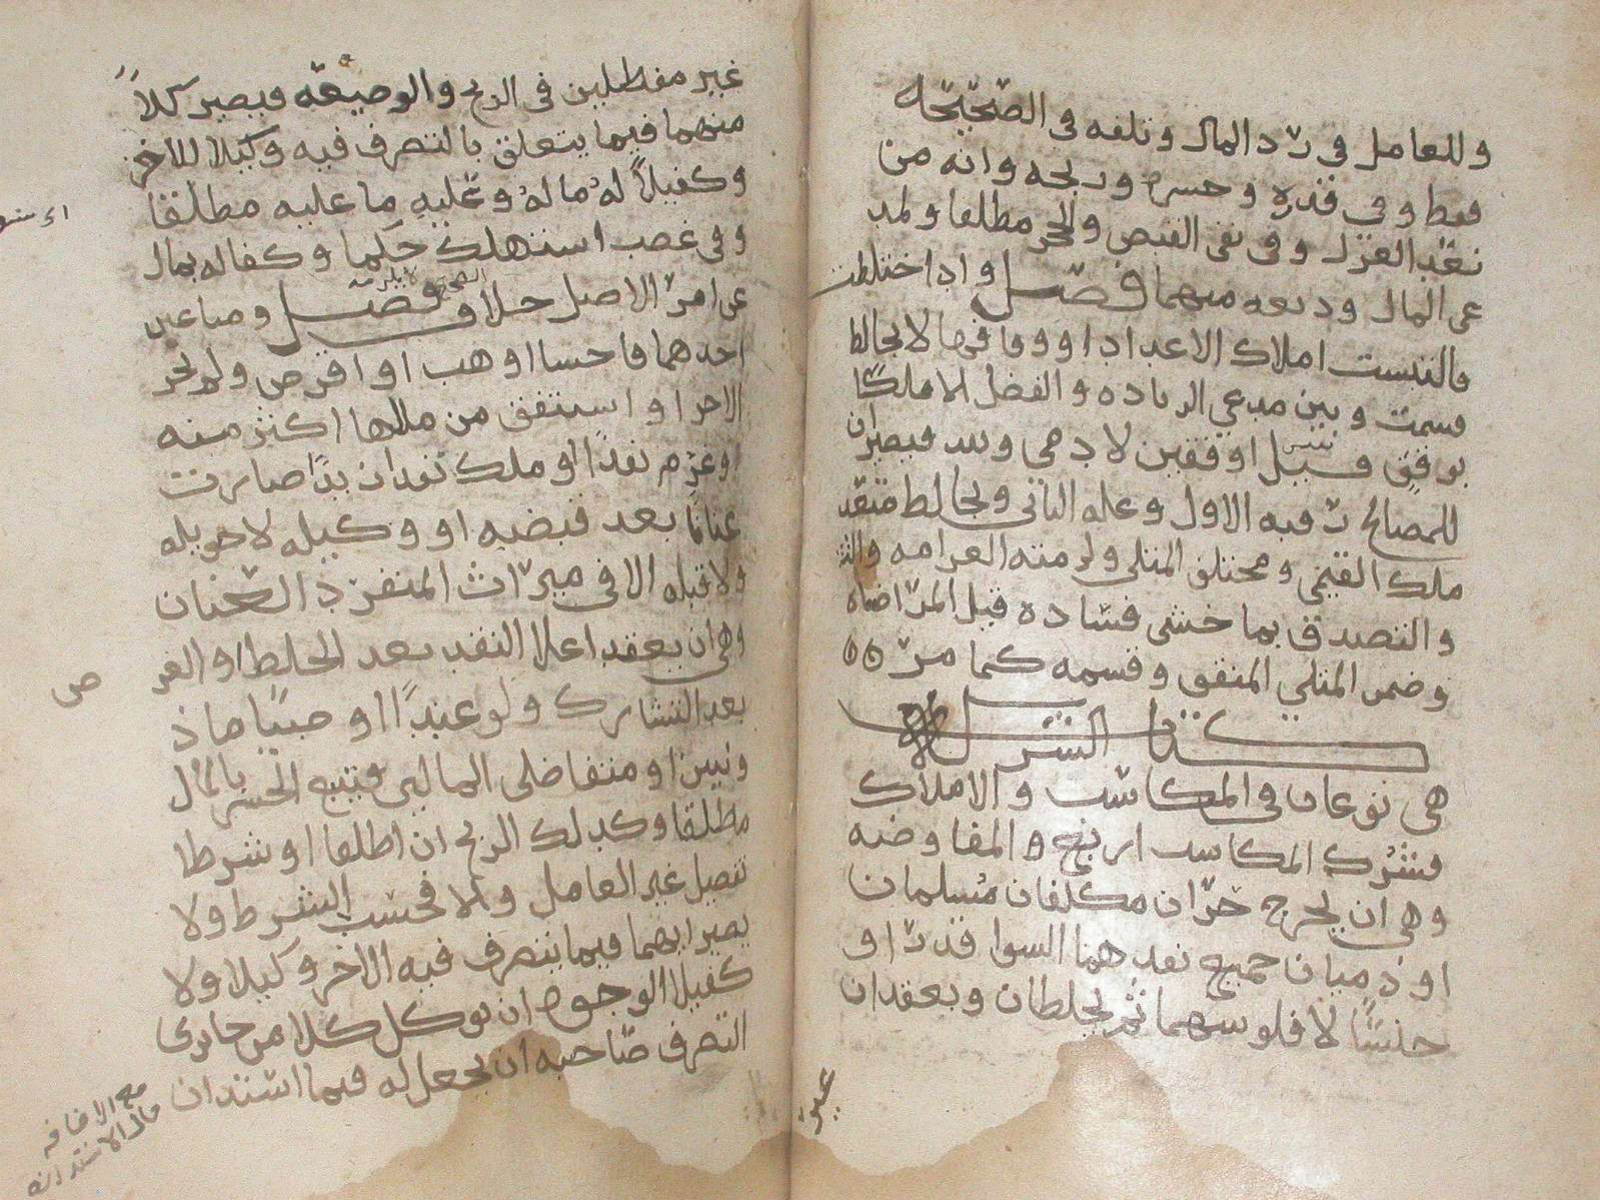 وللعامل في رد المال وتلفه في الصحيحه
فقط وفي قدره وخسره وربحه وانه من
بعد العزل وفي نفي القبض والحجر مطلقا ولمد
عي المال وديعه منهما فصل واذا اختلطت
فالتبست املاك الاعداد او ووقافها لا بخالط
قسمت وبين مدعي الزياده والفضل الا ملكا
بوقف قيل او وقفين لادمي ولله فيصيران
للمصالح رقبه الاول وغله الثاني وبخالط متعد
ملك القيمي ومختلف المثلي ولزمته الغرامه والتـ
والتصدق بما خشي فساده قبل المراضاه
وضمن المثلي المتفق وقسمه كما مر
كتاب الشركه
هي نوعان في المكاسب والاملاك
فشرك المكاسب اربع والمفاوضه
وهي ان يخرج حران مكلفان مسلمان
او ذميان جميع نقدهما السوا قدرا و
جنسا لا فلوسهما ثم يخلطان ويعقدان
غير
غير مفضلين في الربح والوضيعه فيصير كلا
منهما فيما يتعلق بالتصرف فيه وكيلا للاخر
وكفيلا له ما له وعليه ما عليه مطلقا
وفي غصب استهلك حكما وكفاله بمال
عن امر الاصل خلاف فصل ومتى غبن
احدهما فاحشا او وهب او اقرض ولم يجز
الاخر او استنفق من مالها اكثر منه
او غرم نقدا او ملك نقدا زائدا صارت
عنانا بعد قبضه او وكيله لا حويله
ولا قبله الا في ميراث المنفرد العنان
وهي ان يعقدا على النقد بعد الخلط او العر
بعد التشارك ولو عبدا او صبيا ماذ
ونين او متفاضلي المالين فيتبع الخسر بالمال
مطلقا وكذلك الربح ان اطلقا او شرطا
تفضيل غير العامل والا فحسب الشرط ولا
يصير ايهما فيما يتصرف فيه الاخر وكيلا ولا
كفيلا الوجوه ان يوكل كلا من جايزي
التصرف صاحبه ان يجعل له فيما استدان
مع الاضافه
حال الاستدانه